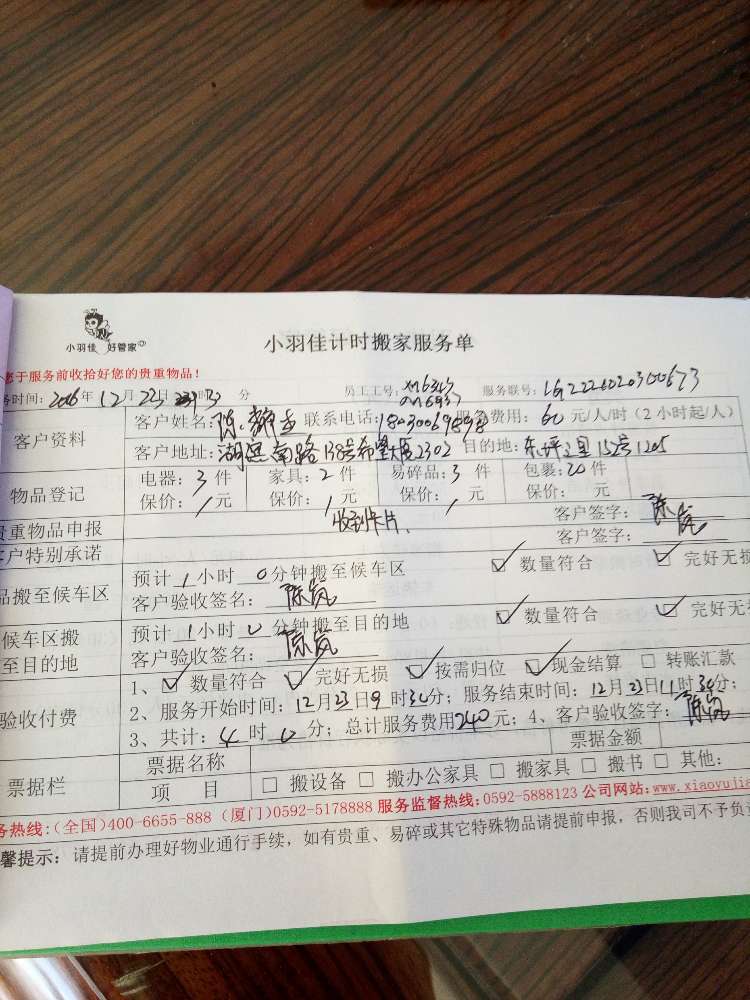 小羽佳 好管家
小羽佳计时搬家服务单
您于服务前收拾好您的贵重物品!
务时间: 2016年12月22日 时 分 员工工号: 服务联号:
客户资料 客户姓名: 陈 联系电话: 18030069898 服务费用: 60 元/人/时 (2小时起/人)
客户地址: 湖滨南路138号希望大厦2302 目的地: 东坪之里152号1205
物品登记 电器: 3 件 家具: 2 件 易碎品: 3 件 包裹: 20 件
保价: / 元 保价: / 元 保价: / 元 保价: 元
贵重物品申报 收到卡片. 客户签字: 陈岚
客户特别承诺 客户签字:
品搬至候车区 预计 1 小时 0 分钟搬至候车区 ☑ 数量符合 ☑ 完好无损
客户验收签名: 陈岚
候车区搬至目的地 预计 1 小时 0 分钟搬至目的地 ☑ 数量符合 ☑ 完好无
客户验收签名: 陈岚
验收付费 1、☑ 数量符合 ☑ 完好无损 ☑ 按需归位 ☑ 现金结算 □ 转账汇款
2、服务开始时间: 12月23日9时30分; 服务结束时间: 12月23日11时30分;
3、共计: 4 时 0 分; 总计服务费用240元; 4、客户验收签字: 陈岚
票据栏 票据名称 票据金额
项 目 □ 搬设备 □ 搬办公家具 □ 搬家具 □ 搬书 □ 其他:
务热线:(全国)400-6655-888 (厦门)0592-5178888 服务监督热线:0592-5888123 公司网站:www.xiaoyujia
馨提示: 请提前办理好物业通行手续, 如有贵重、易碎或其它特殊物品请提前申报, 否则我司不予负